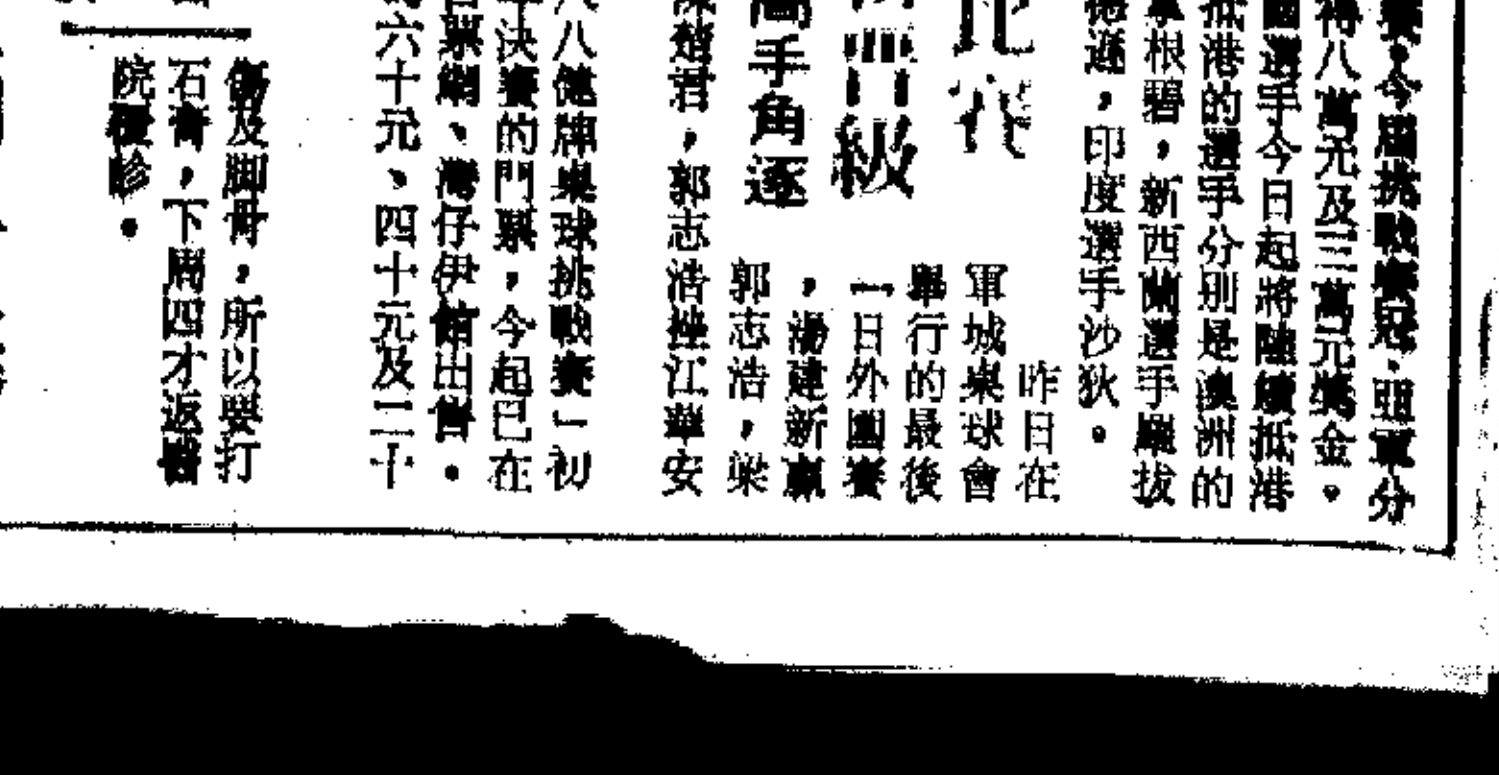 賽，今屆挑戰賽冠、亞軍分
得八萬元及三萬元獎金。
國選手今日起將陸續抵港
抵港的選手分別是澳洲的
拿根碧，新西蘭選手龐拔
德遜，印度選手沙狄。
比賽
級
高手角逐
昨日在
軍城桌球會
舉行的最後
一日外圍賽
，湯建新贏
郭志浩，梁
陳楚君，郭志浩挫江華安
八健牌桌球挑戰賽」初
決賽的門票，今起已在
票網、灣仔伊館出售。
六十元、四十元及二十
傷及脚骨，所以要打
石膏，下周四才返醫
院覆診。